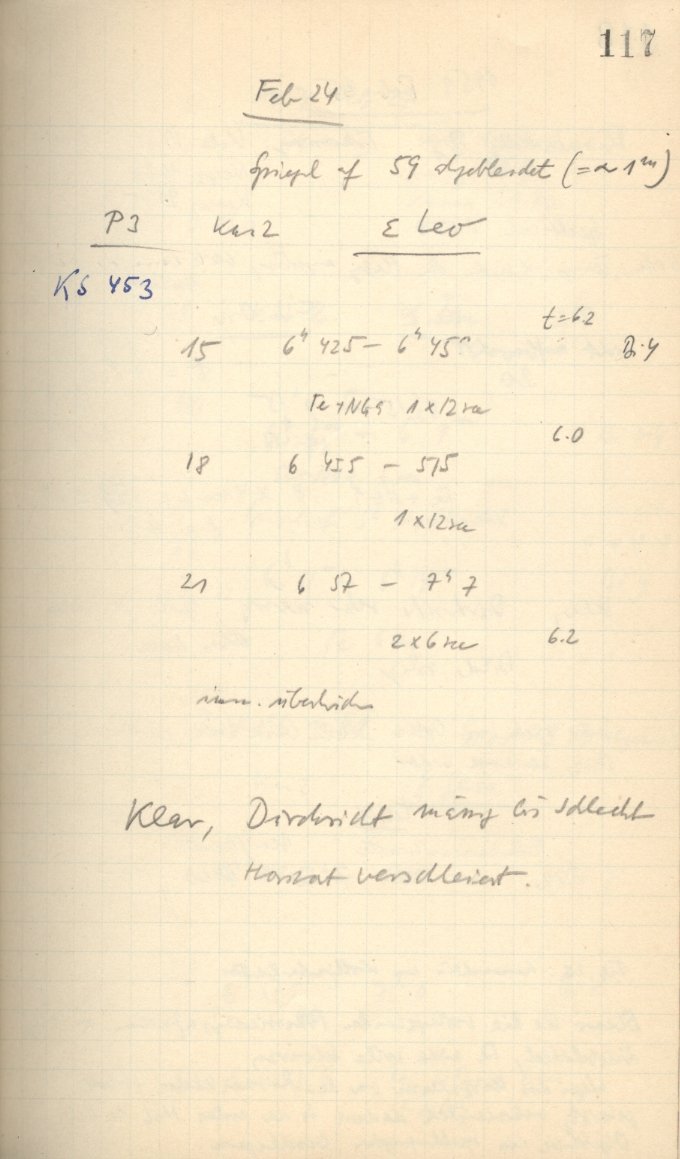 117
Feb 24
Spiegel auf 59 abgeblendet (= ~ 1ᵐ)
P3 Kas 2 ε Leo
KS 453
t=6.2
15 6ʰ 425 – 6ʰ 45⁵ Bi. 4
1 x 12 sec
6.0
18 6 455 – 515
1 x 12 sec
21 6 57 – 7ʰ 7
2 x 6 sec 6.2
Klar, Durchsicht mässig bis schlecht
Horizont verschleiert.